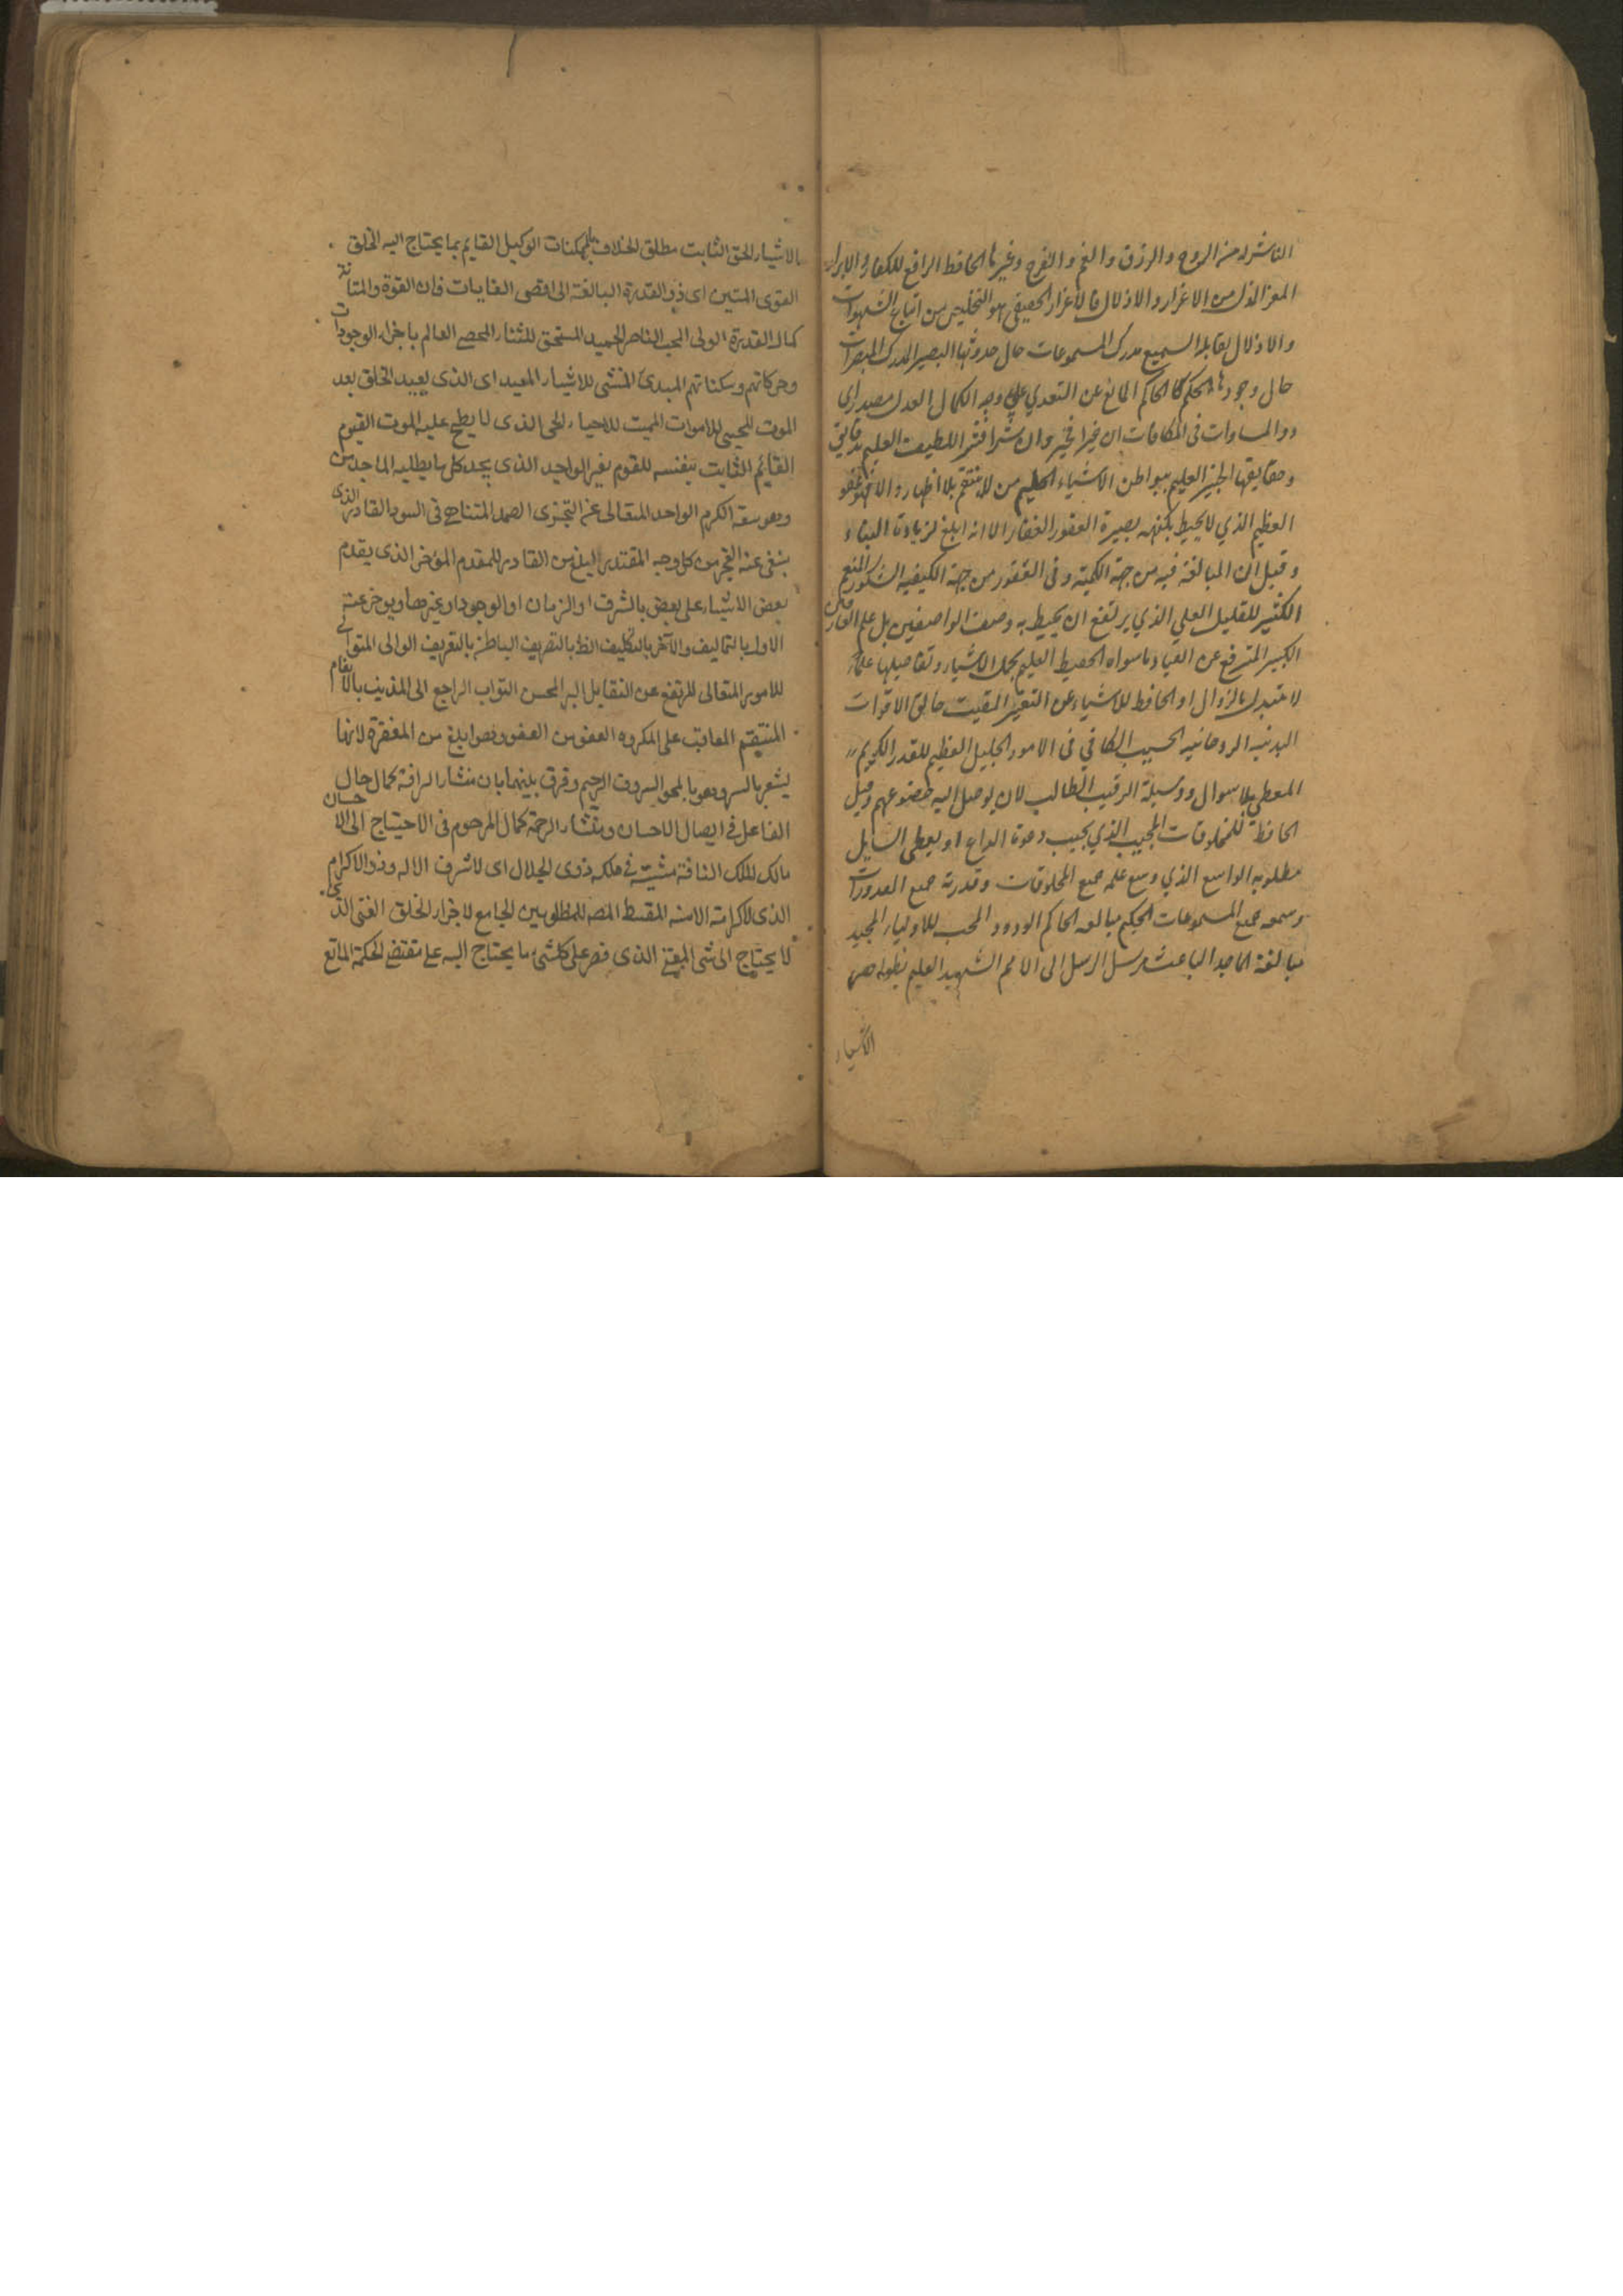 الناشر له من الروح والرزق والغم والفرح وغيرها الحافظ الرافع للكفار والابرار
المعز المذل من الاعزاز والاذلال فالاعزاز الحقيقي هو التخليص من اتباع الشهوات
والاذلال يقابله السميع مدرك المسموعات حال حدوثها البصير المدرك المبصرات
حال وجودها الحكم كالحاكم المانع عن التعدي علي وجه الكمال العدل مصدر اى
ذو المساوات فى المكافات ان خيرا فخير وان شرا فشر اللطيف العليم بدقائق
وحقايقها الخبير العليم ببواطن الاشياء الحليم من لا ينتقم بلا اظهار والا فهو عفو
العظيم الذي لا يحيط بكنهه بصيرة الغفور الغفار الا انه ابلغ لزيادة البناء
وقيل ان المبالغة فيه من جهة الكمية وفى الغفور من جهة الكيفية الشكور المنعم
الكثير للقليل العلي الذي يرتفع ان يحيط به وصف الواصفين بل علم العارفين
الكبير المترفع عن ما سواه الحفيظ العليم بجمل الاشياء وتفاصيلها علما
لا يتبدل بالزوال او الحافظ للاشياء عن التغير المقيت خالق الاقوات
البدنية الروحانية الحسيب الكافي فى الامور الجليل العظيم للقدر الكريم
المعطي بلا سوال ووسيلة الرقيب الطالب لان يوصل اليه خضوعهم وقيل
الحافظ للمخلوقات المجيب الذي يجيب دعوة الداع او يعطى السايل
مطلوبه الواسع الذي وسع علمه جميع المخلوقات وقدرته جميع المقدورات
وسمعه جميع المسموعات الحكيم مبالغه الحاكم الودود المحب للاولياء المجيد
مبالغة الماجد الباعث مرسل الرسل الى الامم الشهيد العليم بظواهر
الاشياء
بالاشياء الحق الثابت مطلق الخلاف الممكنات الوكيل القايم بما يحتاج اليه الخلق
القوى المتين اى ذو القدرة البالغة الى اقصى الغايات فان القوة والمتانة
كمال القدرة الولى المحب الناصر الحميد المستحق للثناء المحصى العالم باجزاء الوجودات
وحركاتهم وسكناتهم المبدئ المنشى للاشياء المعيد اى الذى يعيد الخلق بعد
الموت المحيى للاموات المميت للاحياء الحى الذى لا يطرح عليه الموت القيوم
القائم الثابت بنفسه للقوم بغير الواجد الذى يجد كل ما يطلبه الماجد من
وهو سعة الكرم الواحد المتعالى عن التجزى الصمد المتناهى فى السود القادر الذى
ينفى عنه العجز من كل وجه المقتدر ابلغ من القادر المقدم المؤخر الذى يقدم
بعض الاشياء على بعض بالشرف او الزمان او الوجود او غيرها ويوخر عنه
الاول بالتاليف والآخر بالتكليف الظ بالتصريف الباطن بالتعريف الوالى المتولى
للامور المتعالى المرتفع عن النقايل البر المحسن التواب الراجع الى المذنب بالانعام
المنتقم المعاقب على المكروه العفو من العفو وهو ابلغ من المغفرة لانها
يشعر بالستر وهو بالمحو الروف الرحيم وفرق بينهما بان منشاء الرافة كمال حال
الفاعل فى ايصال الاحسان ومنشاء الرحمة كمال المرحوم فى الاحتياج الى الاحسان
مالك الملك النافذ مشيته فى ملكه ذوى الجلال اى لا شرف الا له وذو الاكرام
الذى لا كرامة الا منه المقسط المنصف للمظلومين الجامع لاجزاء الخلق الغنى الذى
لا يحتاج الى شى المغنى الذى قصر على كل شئ ما يحتاج اليه على مقتضى الحكمة المانع